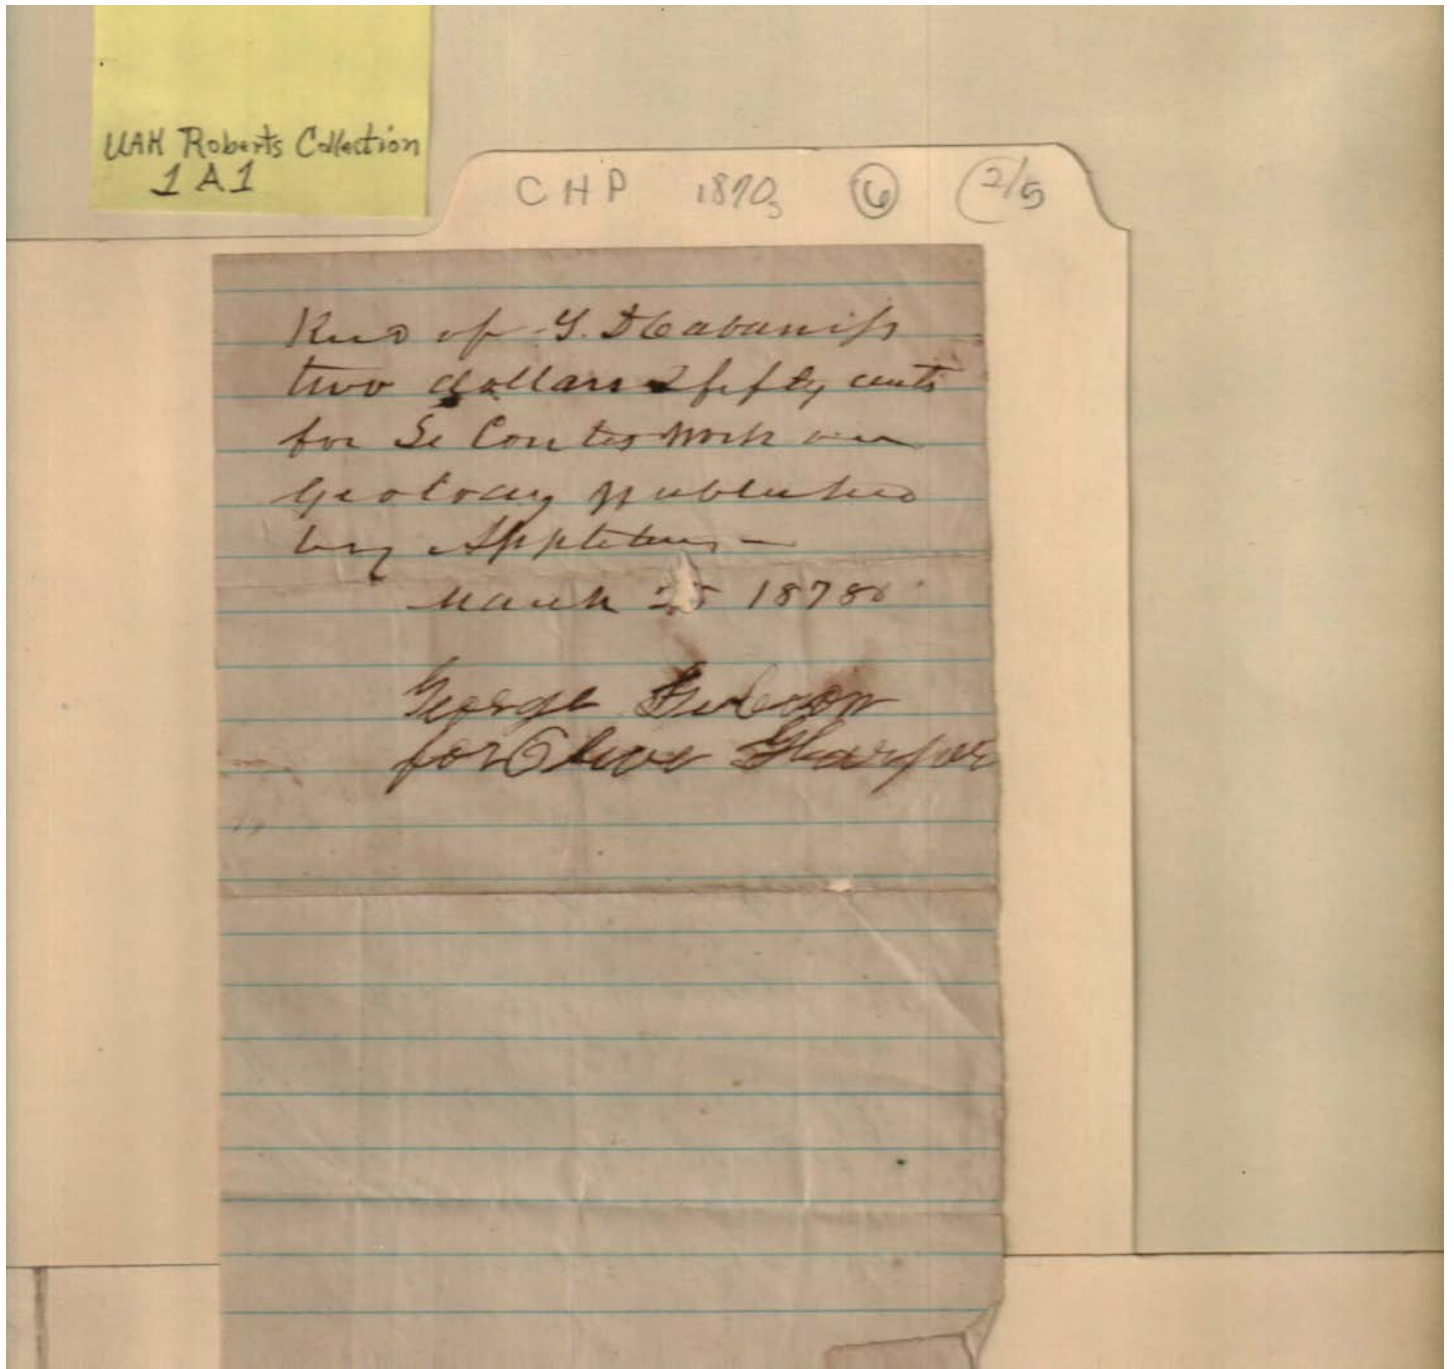 UAH Roberts Collection
1 A 1
CHP 1870s 6 2/5
Recd of S. D Cabaniss
two dollars & fifty cents
for Le Contes work on
Geology published
by Appletons
March 25 1878
George
for Oliver Harper